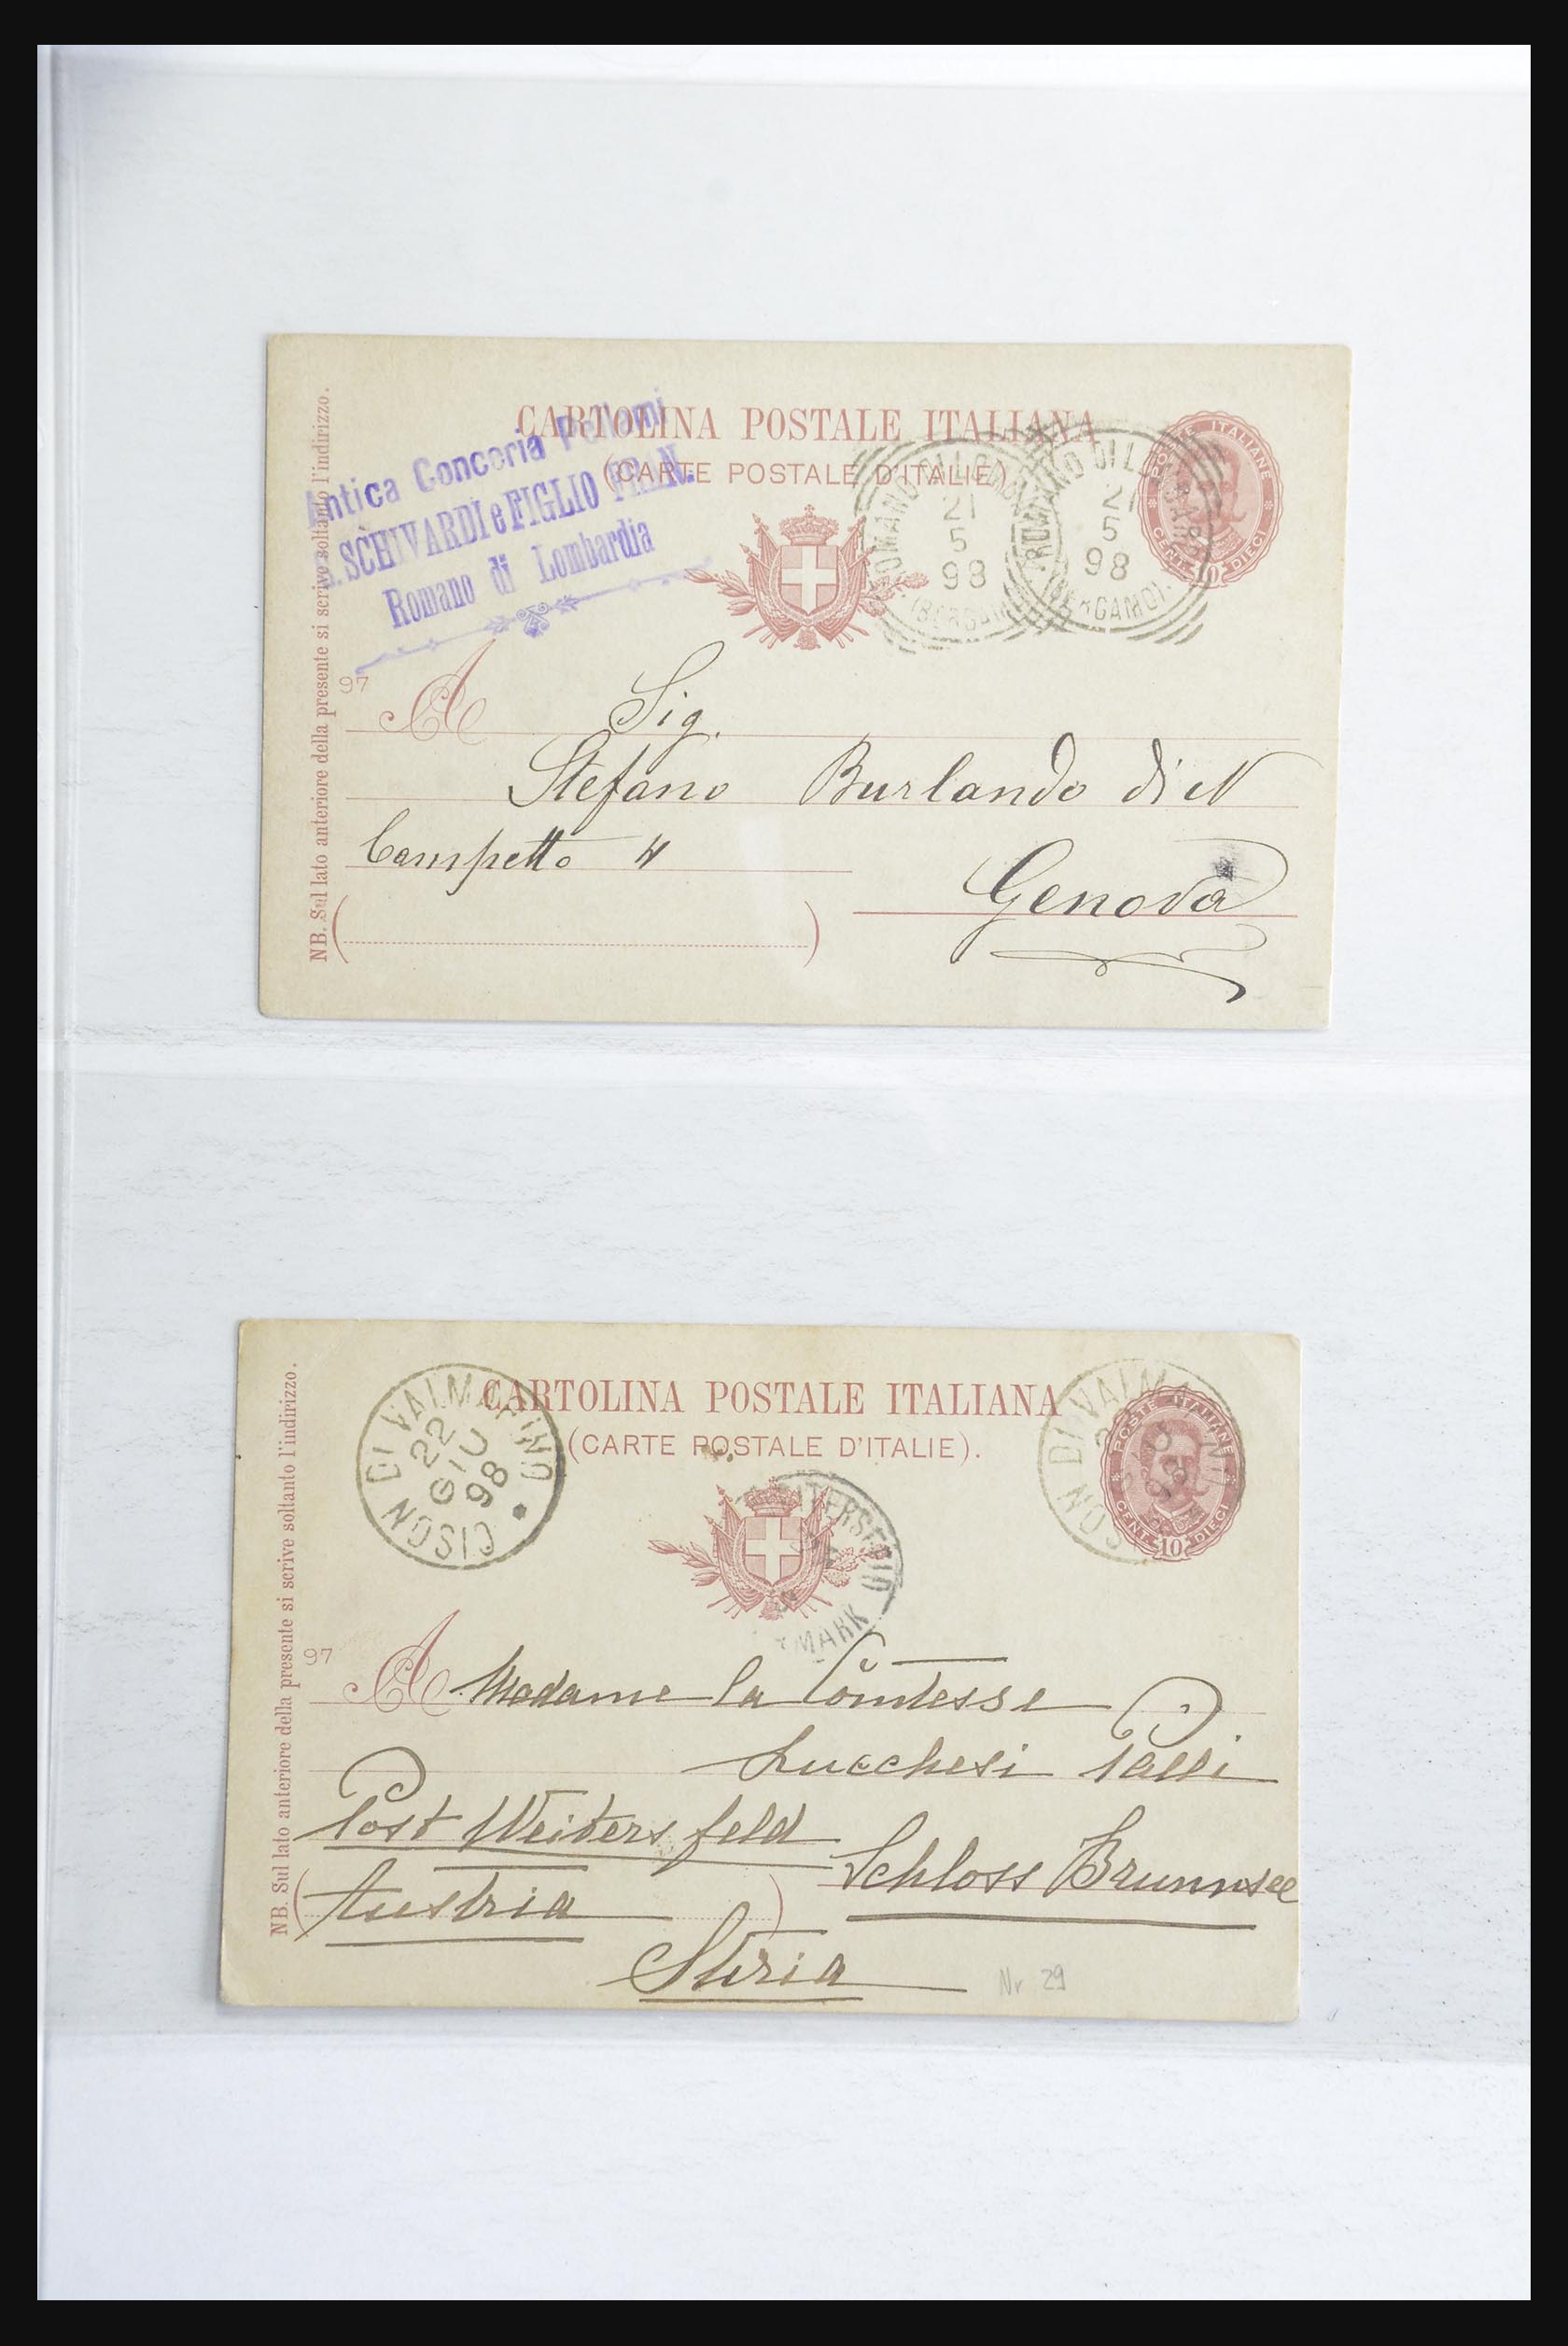 CARTOLINA POSTALE ITALIANA
(CARTE POSTALE D'ITALIE)
Antica Conceria Pellami
SCHIVARDI e FIGLIO FRAN.
Romano di Lombardia
POSTE ITALIANE
CENT. 10 DIECI
ROMANO DI LOMB
21
5
98
(BERGAM
ROMANO DI LOMBARD
21
5
98
(BERGAMO)
NB. Sul lato anteriore della presente si scrive soltanto l'indirizzo.
97
A Sig.
Stefano Burlando di N
Campetto 4
Genova
CARTOLINA POSTALE ITALIANA
(CARTE POSTALE D'ITALIE).
CISON DI VALMARINO
22
GIU
98
SON DI VALMA
98
POSTE ITALIANE
CENT. 10 DIECI
ITERSFELD
MARK
NB. Sul lato anteriore della presente si scrive soltanto l'indirizzo.
97
A Madame la Comtesse
Lucchesi Palli
Post Weitersfeld
Schloss Brunnsee
Austria
Stiria
Nr 29